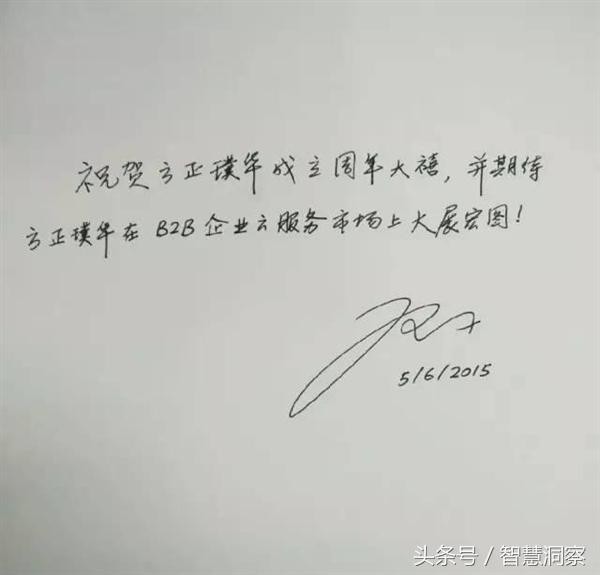 祝贺方正璞华成立周年大禧，并期待
方正璞华在B2B企业云服务市场上大展宏图！
5/6/2015
头条号／智慧洞察